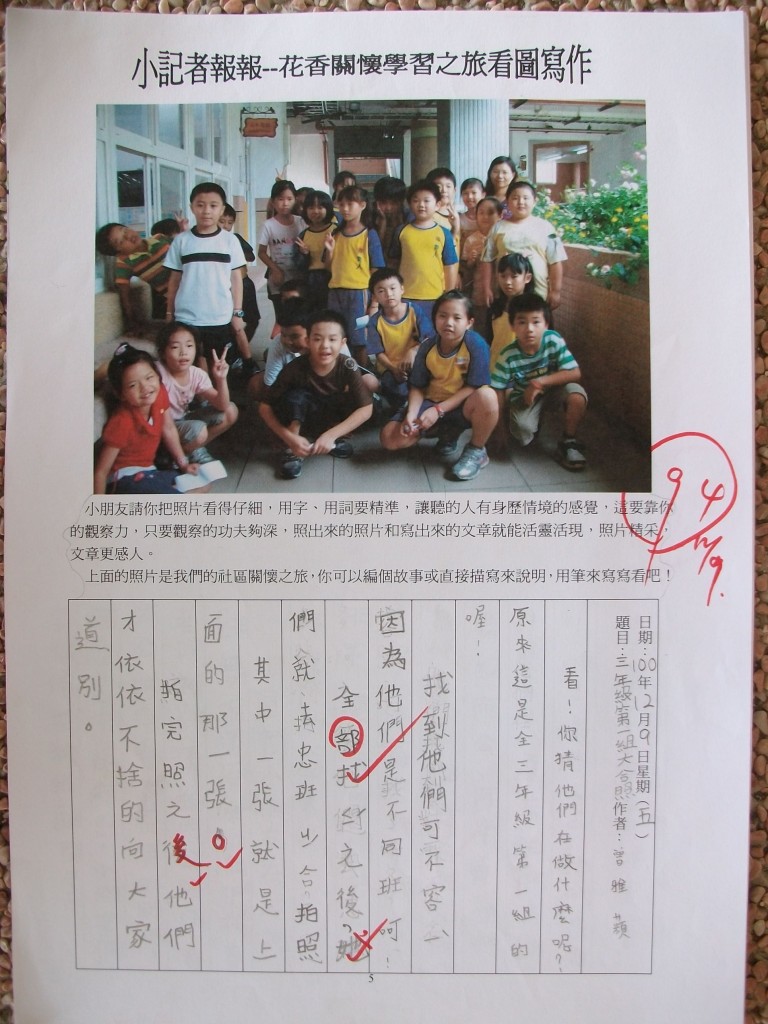 小記者報報--花香關懷學習之旅看圖寫作
小朋友請你把照片看得仔細，用字、用詞要精準，讓聽的人有身歷情境的感覺，這要靠你
的觀察力，只要觀察的功夫夠深，照出來的照片和寫出來的文章就能活靈活現，照片精采，
文章更感人。
上面的照片是我們的社區關懷之旅，你可以編個故事或直接描寫來說明，用筆來寫寫看吧！
94
12/9.
日期：100年12月9日星期(五)
題目：三年級第一組大合照作者：曾雅蘋
看！你猜他們在做什麼呢？
原來這是全三年級第一組的
喔！
找到他們可不容
因為他們是不同班呵！
全部找 之後，她
們就 去忠班 合拍照
其中一張就是上
面的那一張。
拍完照之後他們
才依依不捨的向大家
道別。
5